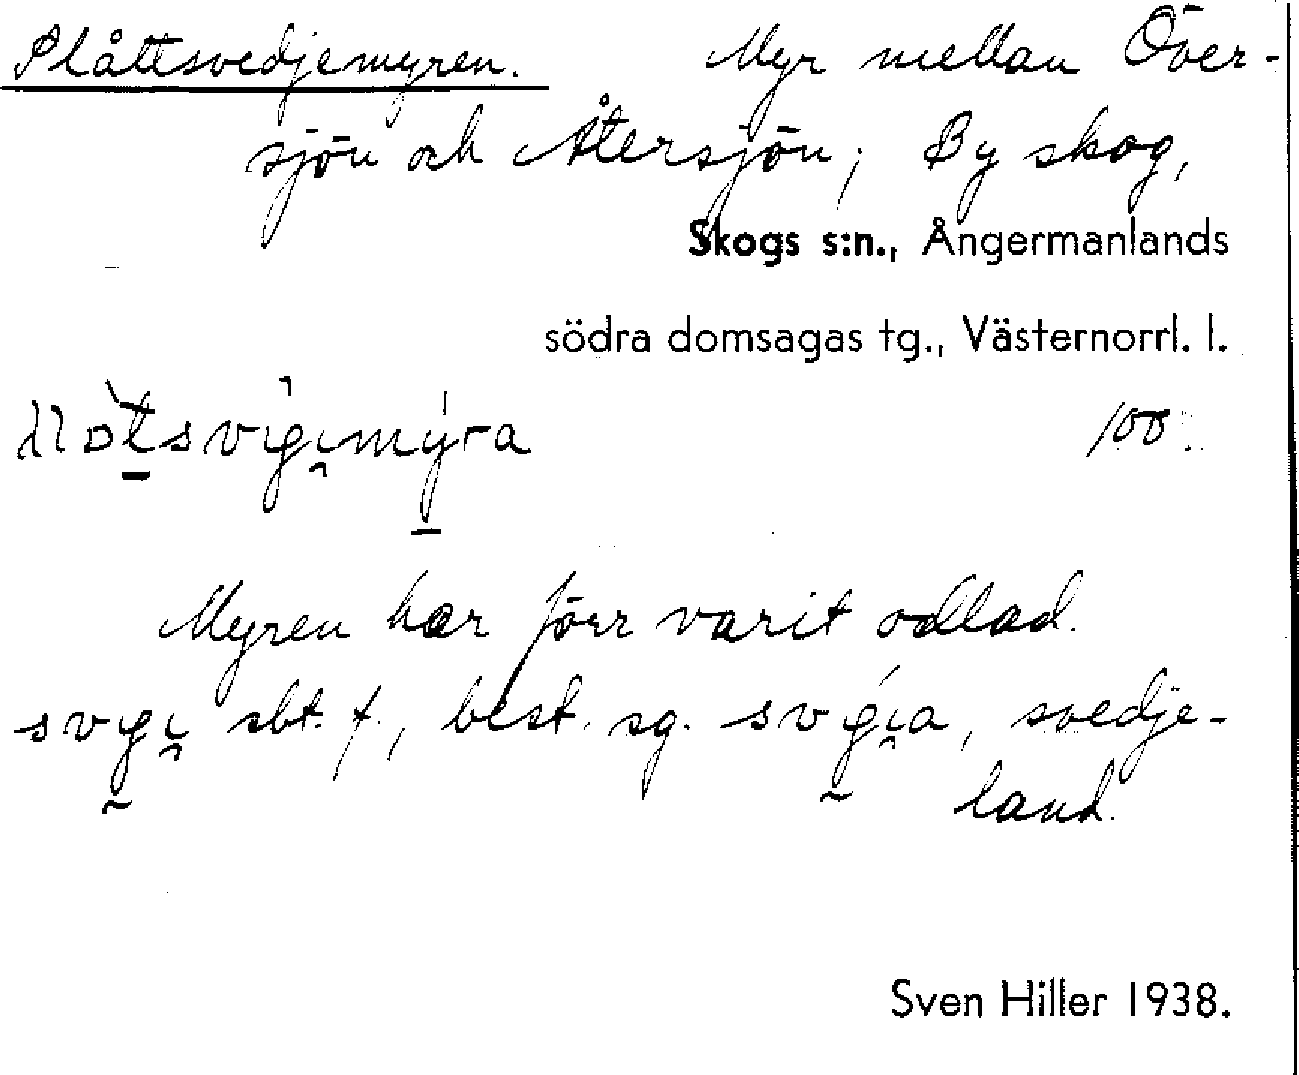 Plåttsvedjemyren. Myr mellan Över-
sjön och Återsjön; By skog,
Skogs s:n., Ångermanlands
södra domsagas tg., Västernorrl. l.
100
Myren har förr varit odlad.
sbt. f., best. sg. svedje-
land.
Sven Hiller 1938.